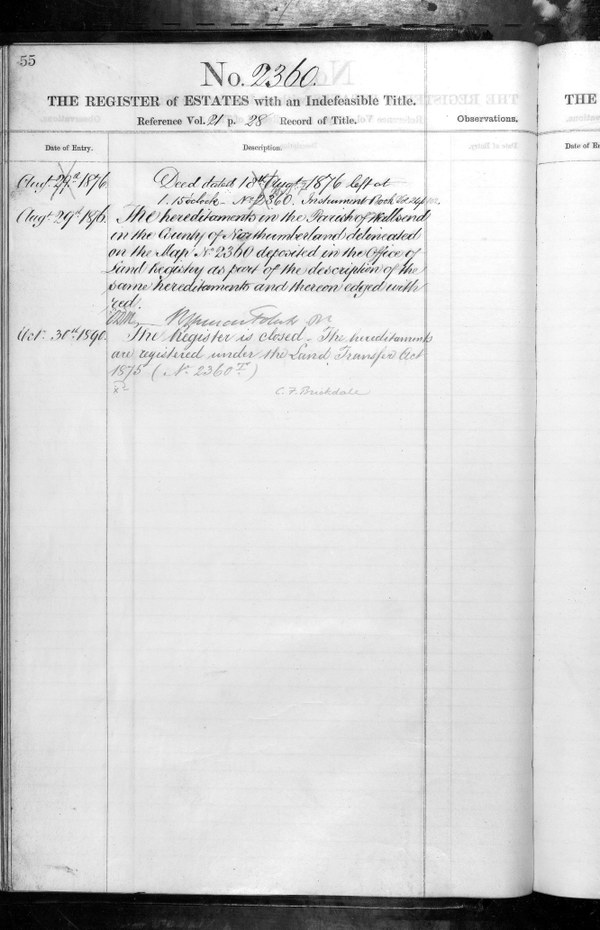 55
No. 2360.
THE REGISTER of ESTATES with an Indefeasible Title.
Reference Vol. 21 p. 28 Record of Title.
Observations.
Date of Entry.
Description.
Augt 1876
Deed dated 18th Augt 1876 left at
1.15 o'clock No 2360. Instrument Book
Augt 29th 1876.
The hereditaments in the Parish of Wallsend
in the County of Northumberland delineated
on the Map No 2360 deposited in the Office of
Land Registry as part of the description of the
same hereditaments and thereon edged with
red.
Oct. 30th 1890.
The Register is closed. The hereditaments
are registered under the Land Transfer Act
1875 (No. 2360T)
C. F. Brickdale
THE
Date of En